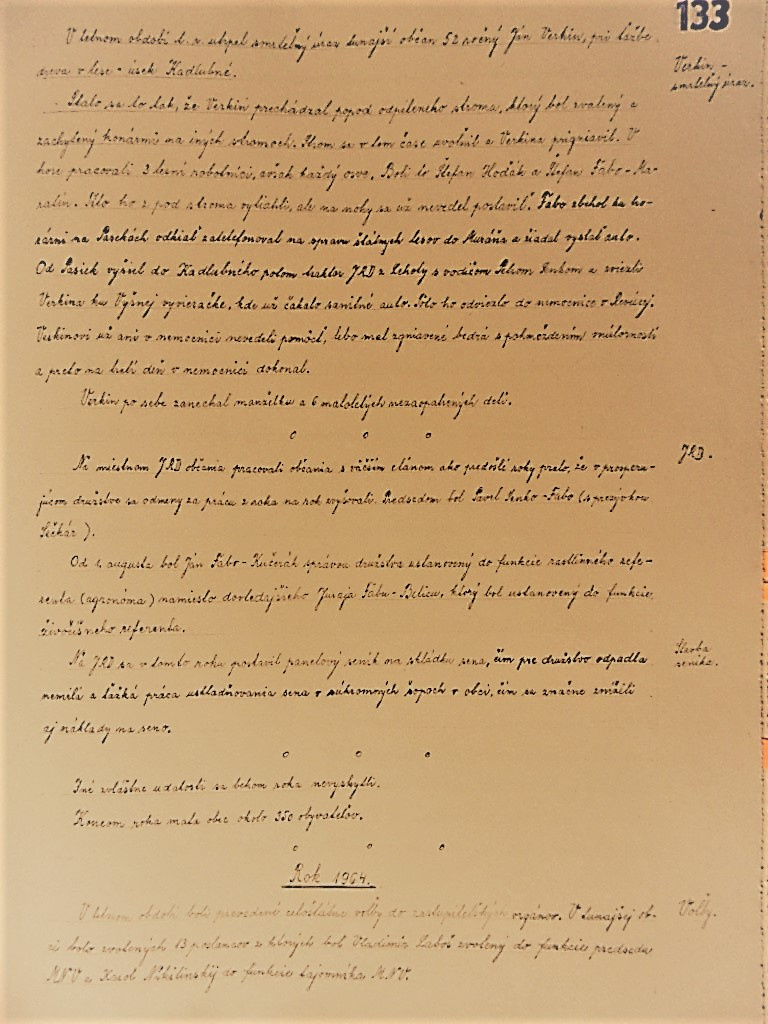 133
V letnom období t. r. utrpel smrteľný úraz tunajší občan 52 ročný Ján Verkin, pri ťažbe
dreva v lese - úsek Kadlubné.
Verkin -
smrteľný úraz.
Stalo sa to tak, že Verkin prechádzal popod odpíleného stroma, ktorý bol zvalený a
zachytený konármi na iných stromoch. Strom sa v tom čase uvoľnil a Verkina prigniavil. V
hore pracovali 3 lesní robotníci, avšak každý osve. Boli to Štefan Hodák a Štefan Fabo - Ma-
ratin. Títo ho z pod stroma vytiahli, ale na nohy sa už nevedel postaviť. Fabo zbehol ku ho-
rárni na Pasekách odkiaľ zatelefonoval na správu štátnych lesov do Muráňa a žiadal vyslať auto.
Od Pasiek vyšiel do Kadlubného potom traktor JRD z Lehoty s vodičom Petrom Senkom a zviezli
Verkina ku Vyšnej vyvieračke, kde už čakalo sanitné auto. Toto ho odviezlo do nemocnice v Revúcej.
Verkinovi už ani v nemocnici nevedeli pomôcť, lebo mal zgniavené bedrá s pohmoždením vnútorností
a preto na tretí deň v nemocnici dokonal.
Verkin po sebe zanechal manželku a 6 maloletých nezaopatrených detí.
JRD.
Na miestnom JRD občania pracovali občania s väčším elánom ako predošlé roky preto, že v prosperu-
júcom družstve sa odmeny za prácu z roka na rok zvyšovali. Predsedom bol Pavel Senko - Fabo (s prezývkou
Sečkár).
Od 1. augusta bol Ján Fabo - Kučerák správou družstva ustanovený do funkcie rastlinného refe-
renta (agronóma) namiesto dovtedajšieho Juraja Fabu - Bilicu, ktorý bol ustanovený do funkcie
živočíšneho referenta.
Stavba
seníka.
Na JRD sa v tomto roku postavil panelový seník na skládku sena, čím pre družstvo odpadla
nemilá a ťažká práca uskladňovania sena v súkromných šopách v obci, čím sa značne znížili
aj náklady na seno.
Iné zvláštne udalosti sa behom roka nevyskytli.
Koncom roka mala obec okolo 350 obyvateľov.
Rok 1964.
V letnom období boli prevedené celoštátne voľby do zastupiteľských orgánov. V tunajšej ob-
ci bolo zvolených 13 poslancov z ktorých bol Vladimír Laboš zvolený do funkcie predsedu
MNV a Karol Nikólinskij do funkcie tajomníka MNV.
Voľby.